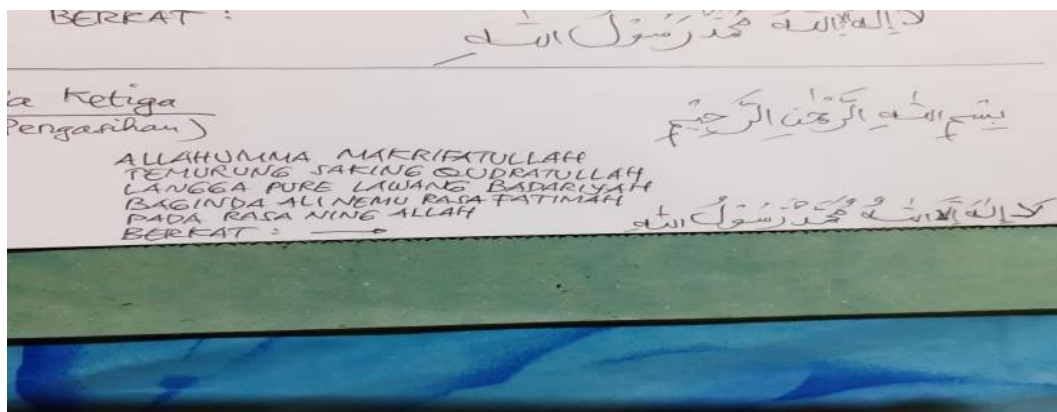 BERKAT : لا إله إلا الله محمد رسول الله
a Ketiga
Pengasihan)
بِسْمِ اللهِ الرَّحْمٰنِ الرَّحِيْمِ
ALLAHUMMA MAKRIFATULLAH
TEMURUNG SAKING QUDRATULLAH
LANGGA PURE LAWANG BADARIYAH
BAGINDA ALI NEMU RASA FATIMAH
PADA RASA NING ALLAH
BERKAT : → لا إله إلا الله محمد رسول الله